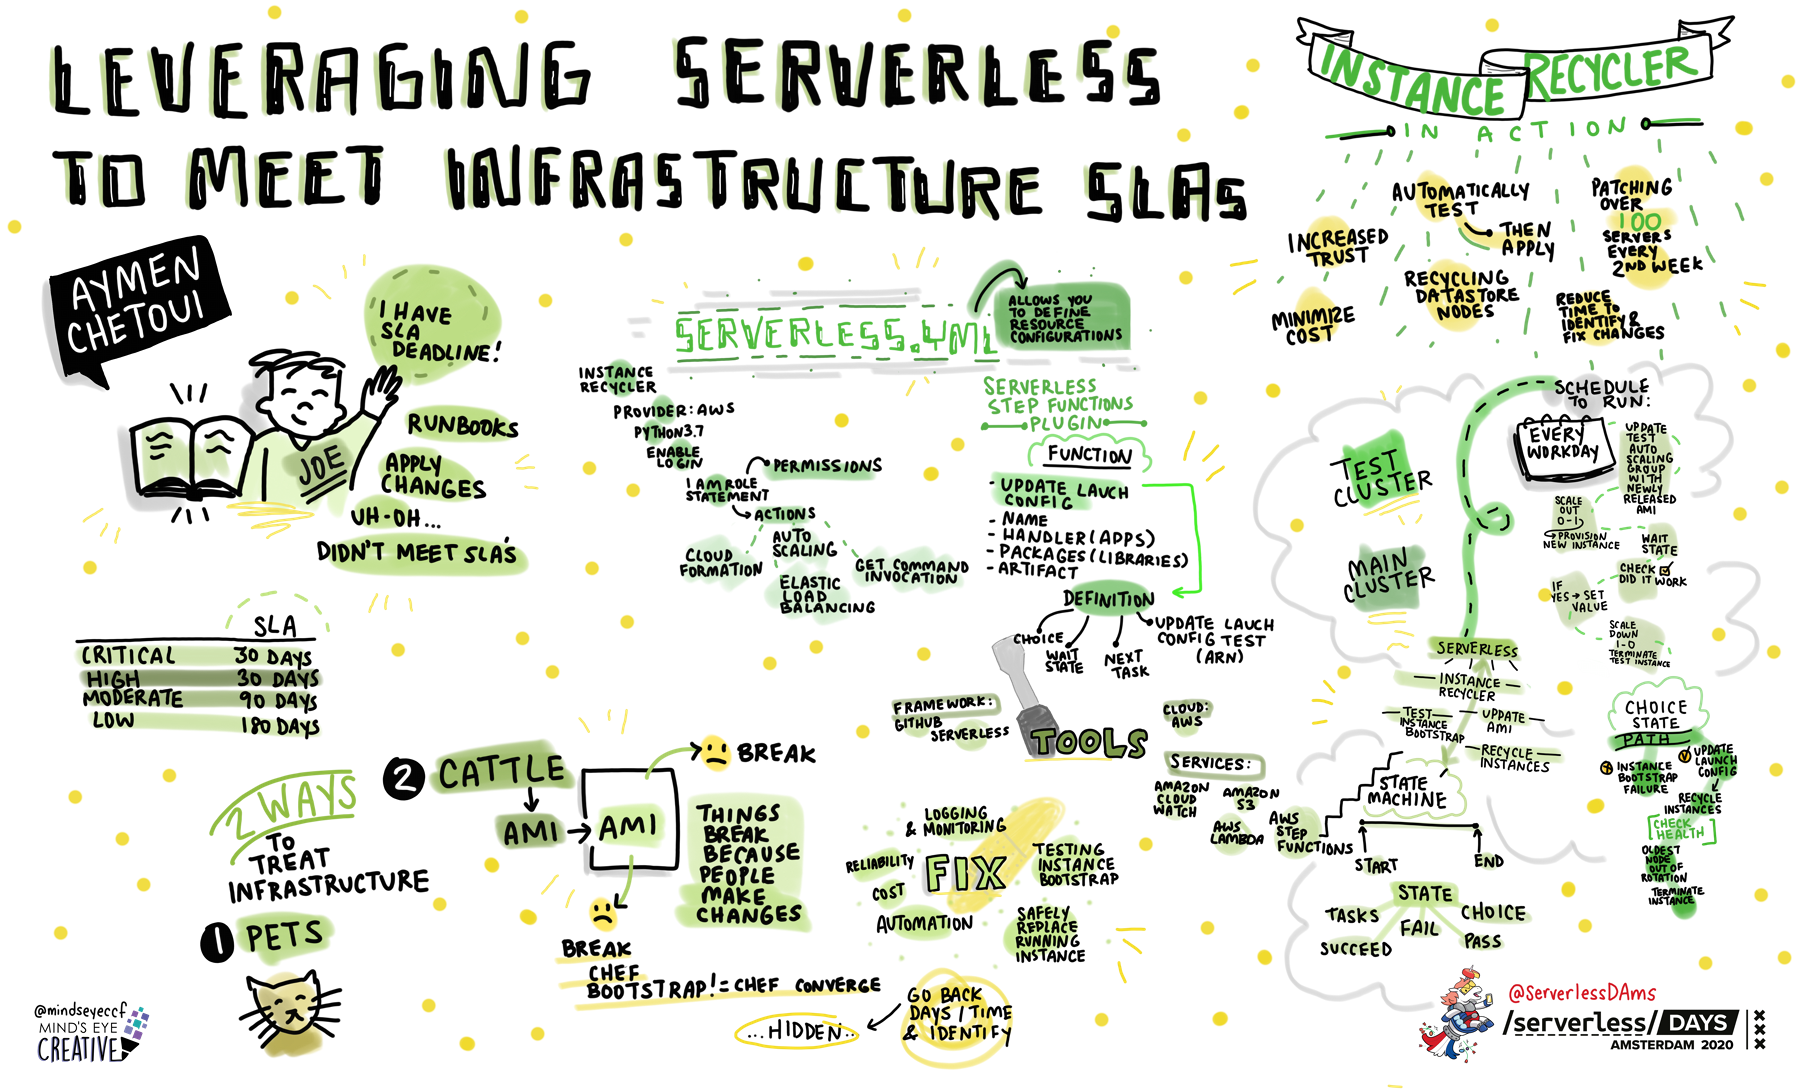 LEVERAGING SERVERLESS
TO MEET INFRASTRUCTURE SLAs
AYMEN
CHETOUI
I HAVE
SLA
DEADLINE!
JOE
RUNBOOKS
APPLY
CHANGES
UH-OH...
DIDN'T MEET SLA'S
SLA
CRITICAL 30 DAYS
HIGH 30 DAYS
MODERATE 90 DAYS
LOW 180 DAYS
2 WAYS
TO
TREAT
INFRASTRUCTURE
1 PETS
2 CATTLE
AMI
AMI
BREAK
BREAK
THINGS
BREAK
BECAUSE
PEOPLE
MAKE
CHANGES
CHEF
BOOTSTRAP != CHEF CONVERGE
GO BACK
DAYS / TIME
& IDENTIFY
...HIDDEN..
SERVERLESS.YML
ALLOWS YOU
TO DEFINE
RESOURCE
CONFIGURATIONS
INSTANCE
RECYCLER
PROVIDER: AWS
PYTHON3.7
ENABLE
LOGIN
I AM ROLE
STATEMENT
PERMISSIONS
ACTIONS
CLOUD
FORMATION
AUTO
SCALING
ELASTIC
LOAD
BALANCING
GET COMMAND
INVOCATION
SERVERLESS
STEP FUNCTIONS
PLUGIN
FUNCTION
- UPDATE LAUCH
CONFIG
- NAME
- HANDLER (APPS)
- PACKAGES (LIBRARIES)
- ARTIFACT
DEFINITION
CHOICE
WAIT
STATE
NEXT
TASK
UPDATE LAUCH
CONFIG TEST
(ARN)
TOOLS
FRAMEWORK:
GITHUB
SERVERLESS
CLOUD:
AWS
SERVICES:
AMAZON
CLOUD
WATCH
AMAZON
S3
AWS
LAMBDA
AWS
STEP
FUNCTIONS
FIX
LOGGING
& MONITORING
RELIABILITY
COST
AUTOMATION
TESTING
INSTANCE
BOOTSTRAP
SAFELY
REPLACE
RUNNING
INSTANCE
INSTANCE RECYCLER
IN ACTION
INCREASED
TRUST
AUTOMATICALLY
TEST
THEN
APPLY
PATCHING
OVER
100
SERVERS
EVERY
2ND WEEK
MINIMIZE
COST
RECYCLING
DATASTORE
NODES
REDUCE
TIME TO
IDENTIFY &
FIX CHANGES
SCHEDULE
TO RUN:
EVERY
WORKDAY
TEST
CLUSTER
MAIN
CLUSTER
UPDATE
TEST
AUTO
SCALING
GROUP
WITH
NEWLY
RELEASED
AMI
SCALE
OUT
0-1
PROVISION
NEW INSTANCE
WAIT
STATE
CHECK
DID IT WORK
IF
YES → SET
VALUE
SCALE
DOWN
1-0
TERMINATE
TEST INSTANCE
SERVERLESS
INSTANCE
RECYCLER
TEST
INSTANCE
BOOTSTRAP
UPDATE
AMI
RECYCLE
INSTANCES
STATE
MACHINE
START
END
STATE
TASKS
SUCCEED
FAIL
CHOICE
PASS
CHOICE
STATE
PATH
INSTANCE
BOOTSTRAP
FAILURE
UPDATE
LAUNCH
CONFIG
RECYCLE
INSTANCES
CHECK
HEALTH
OLDEST
NODE
OUT OF
ROTATION
TERMINATE
INSTANCE
@mindseyeccf
MIND'S EYE
CREATIVE
@ServerlessDAms
/serverless/DAYS
AMSTERDAM 2020